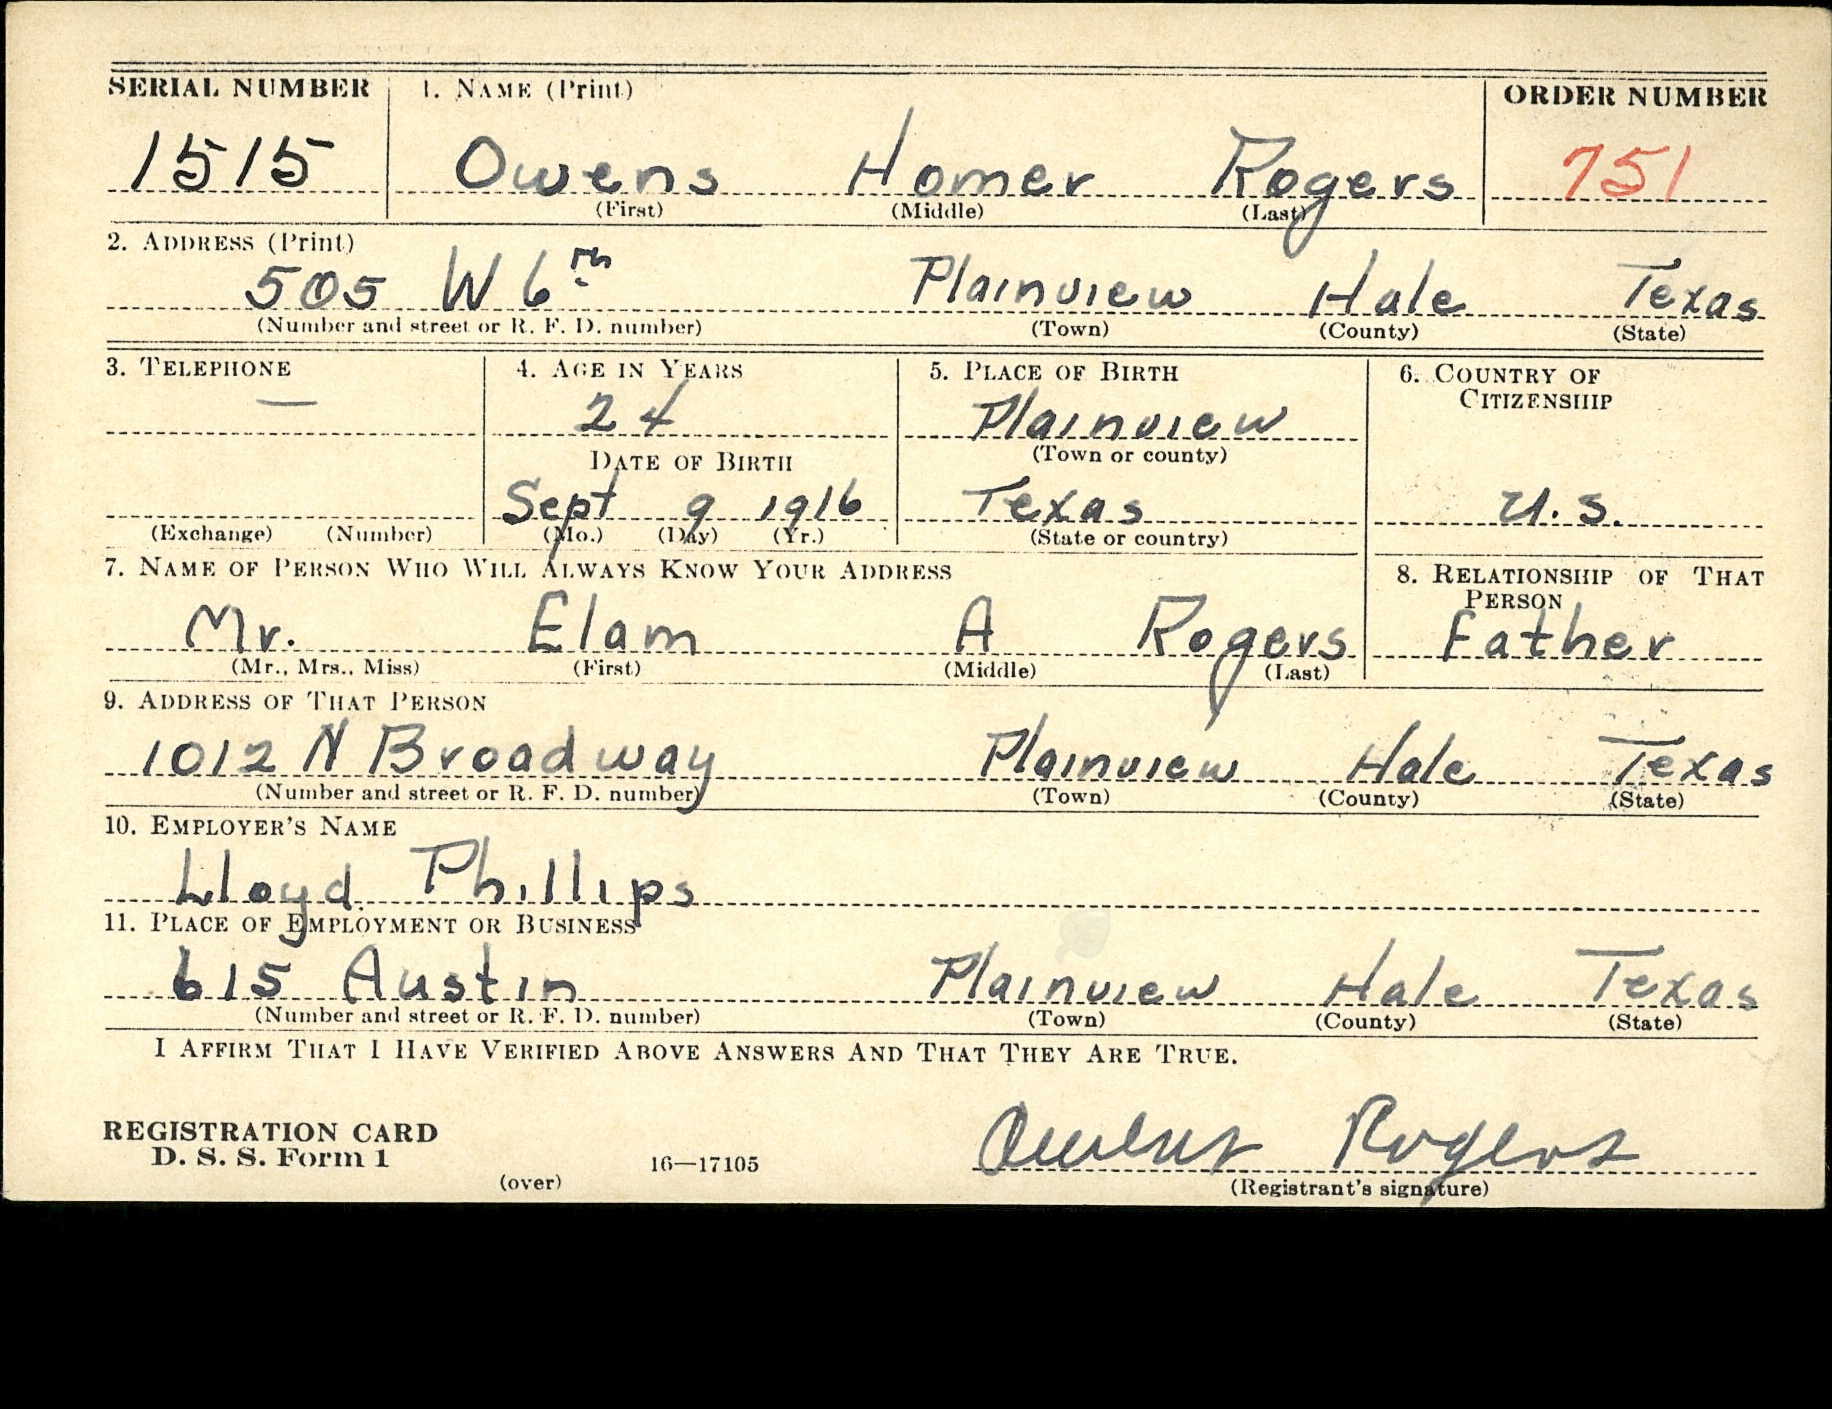 SERIAL NUMBER 1. NAME (Print) ORDER NUMBER
1515 Owens Homer Rogers 751
(First) (Middle) (Last)
2. ADDRESS (Print)
505 W 6th Plainview Hale Texas
(Number and street or R. F. D. number) (Town) (County) (State)
3. TELEPHONE 4. AGE IN YEARS 5. PLACE OF BIRTH 6. COUNTRY OF
CITIZENSHIP
— 24 Plainview
DATE OF BIRTH (Town or county)
Sept 9 1916 Texas U.S.
(Exchange) (Number) (Mo.) (Day) (Yr.) (State or country)
7. NAME OF PERSON WHO WILL ALWAYS KNOW YOUR ADDRESS 8. RELATIONSHIP OF THAT
PERSON
Mr. Elam A Rogers Father
(Mr., Mrs., Miss) (First) (Middle) (Last)
9. ADDRESS OF THAT PERSON
1012 N Broadway Plainview Hale Texas
(Number and street or R. F. D. number) (Town) (County) (State)
10. EMPLOYER'S NAME
Lloyd Phillips
11. PLACE OF EMPLOYMENT OR BUSINESS
615 Austin Plainview Hale Texas
(Number and street or R. F. D. number) (Town) (County) (State)
I AFFIRM THAT I HAVE VERIFIED ABOVE ANSWERS AND THAT THEY ARE TRUE.
REGISTRATION CARD Owens Rogers
D. S. S. Form 1 16—17105
(over) (Registrant's signature)